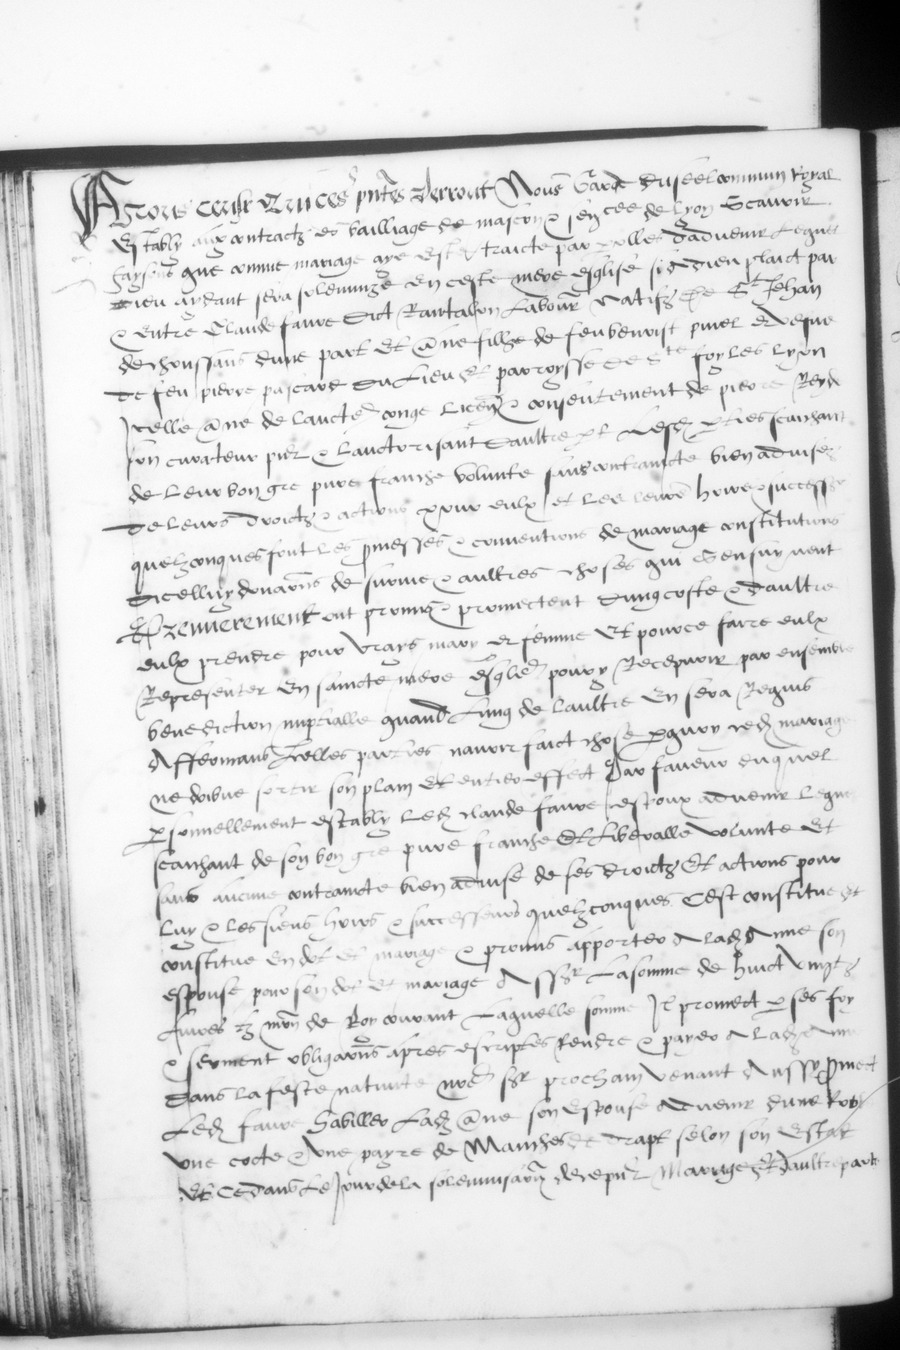 A tous ceulx qui ces pntes verront Nous Garde du seel commun Royal
Estably aux contractz es bailliage de mascon & senccee de Lyon Scavoir
faysons que comme mariage aye este traicte par parolles dadvenir Lequel
Dieu aydant sera solemnize en ceste mere esglise si a dieu plaict par
& Entre Claude faure dict Rantalon Labourr natifz de St Jehan
de choussans dune part Et Anne fillye de feu benoist pinel & vesve
de feu pierre pascard du Lieu & parroysse de Ste foy les Lyon
Icelle Anne de Laucte conge Licen & consentement de pierre
son curateur pnt & Lauctorisant Daultre pt Lesd pties scaichant
de Leur bon gre pure franche volunte sans contraincte bien advisez
de Leurs droictz & actions pour eulx et Les Leurs hoirs & successrs
quelzconques font Les promesses & conventions de mariage constitutions
dicelluy donaons de survie & aultres choses qui sensuyvent
Et premierement ont promis & promectent dung coste & daultre
eulx prendre pour vrays mary & femme Et pource faire eulx
Representer En saincte mere esglise pour y Recepvoir par ensemble
benediction nuptialle quand Lung de Laultre En sera Requis
Affermans Icelles parties navoir faict chose parquoy led mariage
ne doibve sortir son plain Et entier effect Par faveur duquel
personnellement estably Led claude faure espoux advenir Lequel
scaichant de son bon gre pure franche Et Liberalle volunte Et
sans aucune contraincte bien advise de ses droictz Et actions pour
Luy & Les siens hoirs & successeurs quelzconques Cest constitue &
constitue en dot Et mariage & promis apporter A lad Anne son
espouse pour son dot Et mariage Assr La somme de huict vingtz
Livres tz mon de Roy courant Laquelle somme Il promect p ses foy
& serment obligaons apres escriptes Rendre & payer A lad Anne
dans La feste nativite nre sr prochain venant Aussy promect
Led faure habiller Lad Anne son espouse advenir dune Robbe
une cocte & une payre de Manches de drapt selon son Estat
Et ce dans Le Jour de la solemnisaon de pnt Mariage Et Daultre part